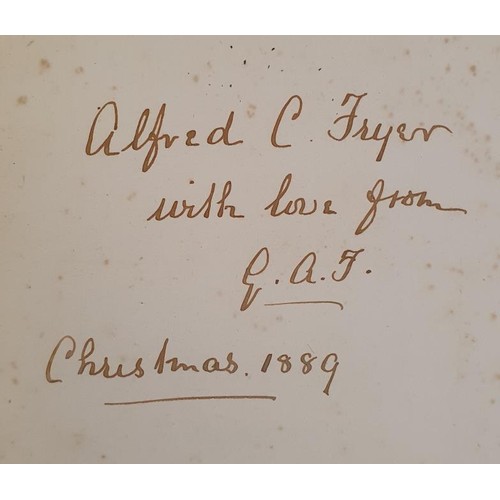 Alfred C. Fryer
with love from
G. A. F.
Christmas. 1889